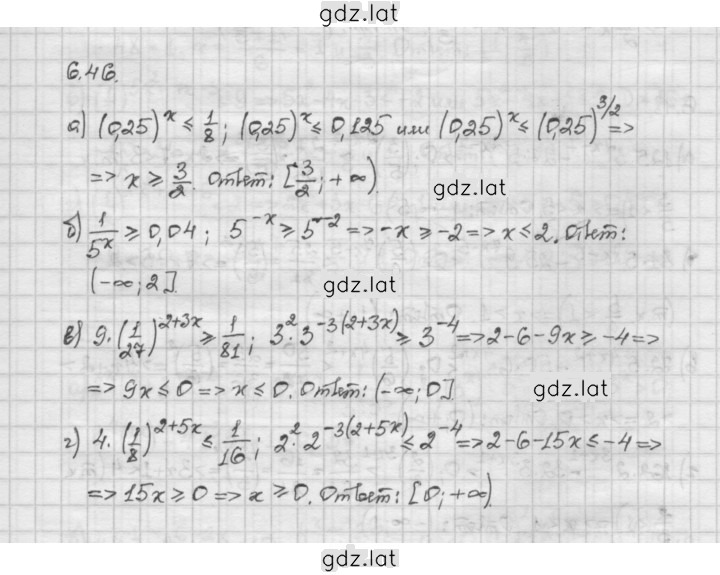 gdz.lat
6.46.
а) (0,25)^x ≤ 1/8; (0,25)^x ≤ 0,125 или (0,25)^x ≤ (0,25)^{3/2} =>
=> x ≥ 3/2. Ответ: [3/2; +∞).
gdz.lat
б) 1/5^x ≥ 0,04; 5^{-x} ≥ 5^{-2} => -x ≥ -2 => x ≤ 2. Ответ:
(-∞; 2].
gdz.lat
в) 9·(1/27)^{2+3x} ≥ 1/81; 3^2·3^{-3(2+3x)} ≥ 3^{-4} => 2-6-9x ≥ -4 =>
=> 9x ≤ 0 => x ≤ 0. Ответ: (-∞; 0].
gdz.lat
г) 4·(1/8)^{2+5x} ≤ 1/16; 2^2·2^{-3(2+5x)} ≤ 2^{-4} => 2-6-15x ≤ -4 =>
=> 15x ≥ 0 => x ≥ 0. Ответ: [0; +∞).
gdz.lat